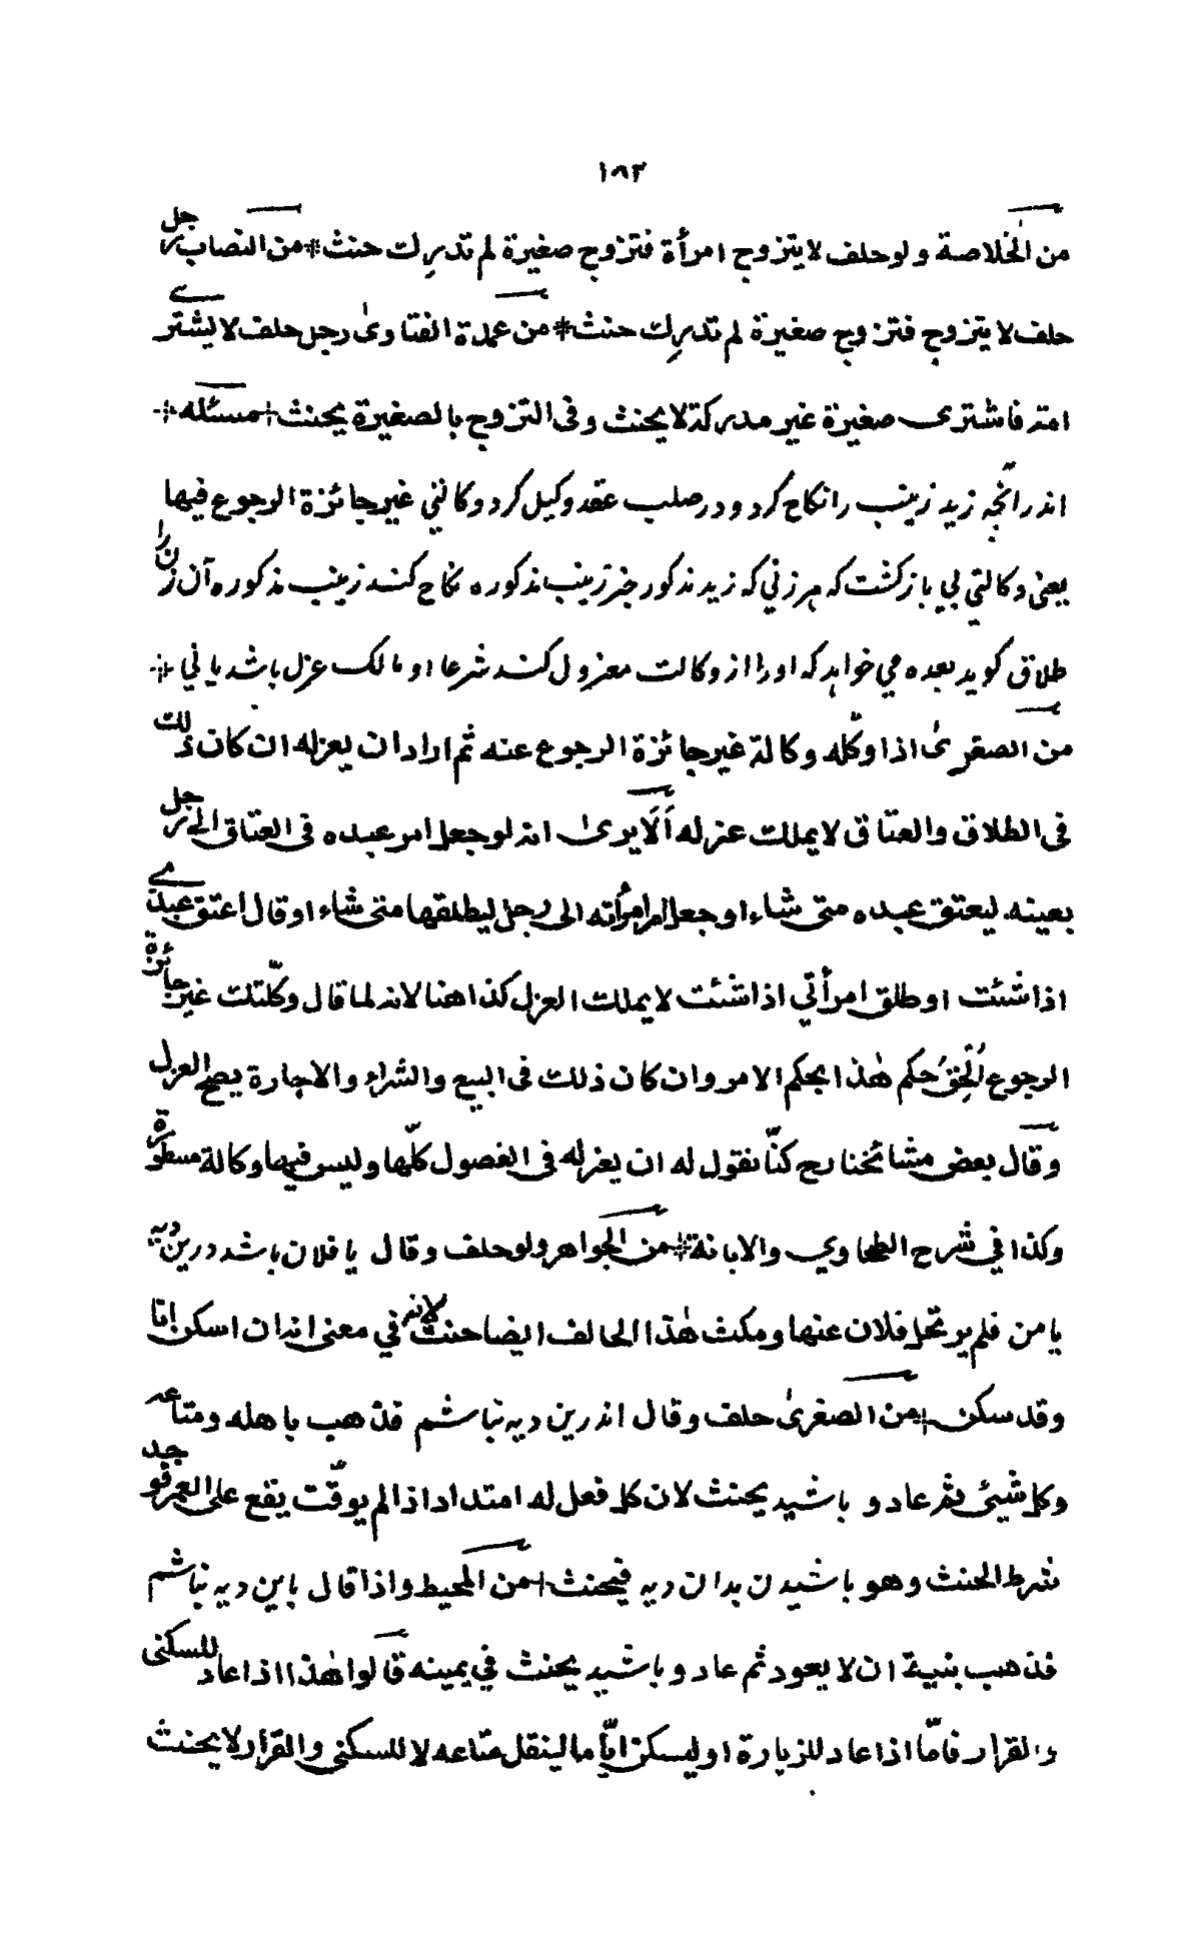 ١٨٣
من الخلاصة ولو حلف لا يتزوج امرأة فتزوج صغيرة لم تدرك حنث * من النصاب رجل
حلف لا يتزوج فتزوج صغيرة لم تدرك حنث * من عمدة الفتاوى رجل حلف لا يشتري
امة فاشترى صغيرة غير مدركة لا يحنث وفى التزوج بالصغيرة يحنث + مسئله +
اندرانچه زيد زينب را نكاح كرد و در صلب عقد وكيل كرد وكالتي غير جائزة الرجوع فيها
يعنى وكالتي بي بازكشت كه هر زني كه زيد مذكور جز زينب مذكوره نكاح كند زينب مذكوره آن زن را
طلاق كويد بعده مي خواهد كه او را از وكالت معزول كند شرعا او مالك عزل باشد يا ني *
من الصغرى اذا وكّله وكالة غير جائزة الرجوع عنه ثم اراد ان يعزله ان كان ذلك
فى الطلاق والعتاق لا يملك عزله ألَا يرى انه لو جعل امر عبده فى العتاق الى رجل
بعينه ليعتق عبده متى شاء او جعل امر امرأته الى رجل ليطلقها متى شاء او قال اعتق عبدي
اذا شئت او طلق امرأتي اذا شئت لا يملك العزل كذا هنا لانه لما قال وكّلتك غير جائزة
الرجوع اُلحِقَ حُكم هٰذا بحكم الامر وان كان ذلك فى البيع والشراء والاجارة يصح العزل
وقال بعض مشائخنا رح كنّا نقول له ان يعزله فى الفصول كلّها وليس فيها وكالة مسطورة
وكذا في شرح الطحاوي والابانة * من الجواهر ولو حلف وقال يا فلان باشد درين ديه
يا من فلم يرتحل فلان عنها ومكث هٰذا الحالف ايضا حنث لانه في معنى انه ان اسكن انا
وقد سكن + من الصغرى حلف وقال اندرين ديه نباشم فذهب باهله ومتاعه
وكل شيئ ثم عاد و باشيد يحنث لان كل فعل له امتداد اذا لم يوقّت يقع على العمر فوجد
شرط الحنث وهو باشيدن بدان ديه فيحنث + من المحيط واذا قال باين ديه نباشم
فذهب بنية ان لا يعود ثم عاد و باشيد يحنث في يمينه قالوا هٰذا اذا عاد للسكنى
والقرار فامّا اذا عاد للزيارة او ليسكن ايّاما لينقل متاعه لا للسكنى والقرار لا يحنث